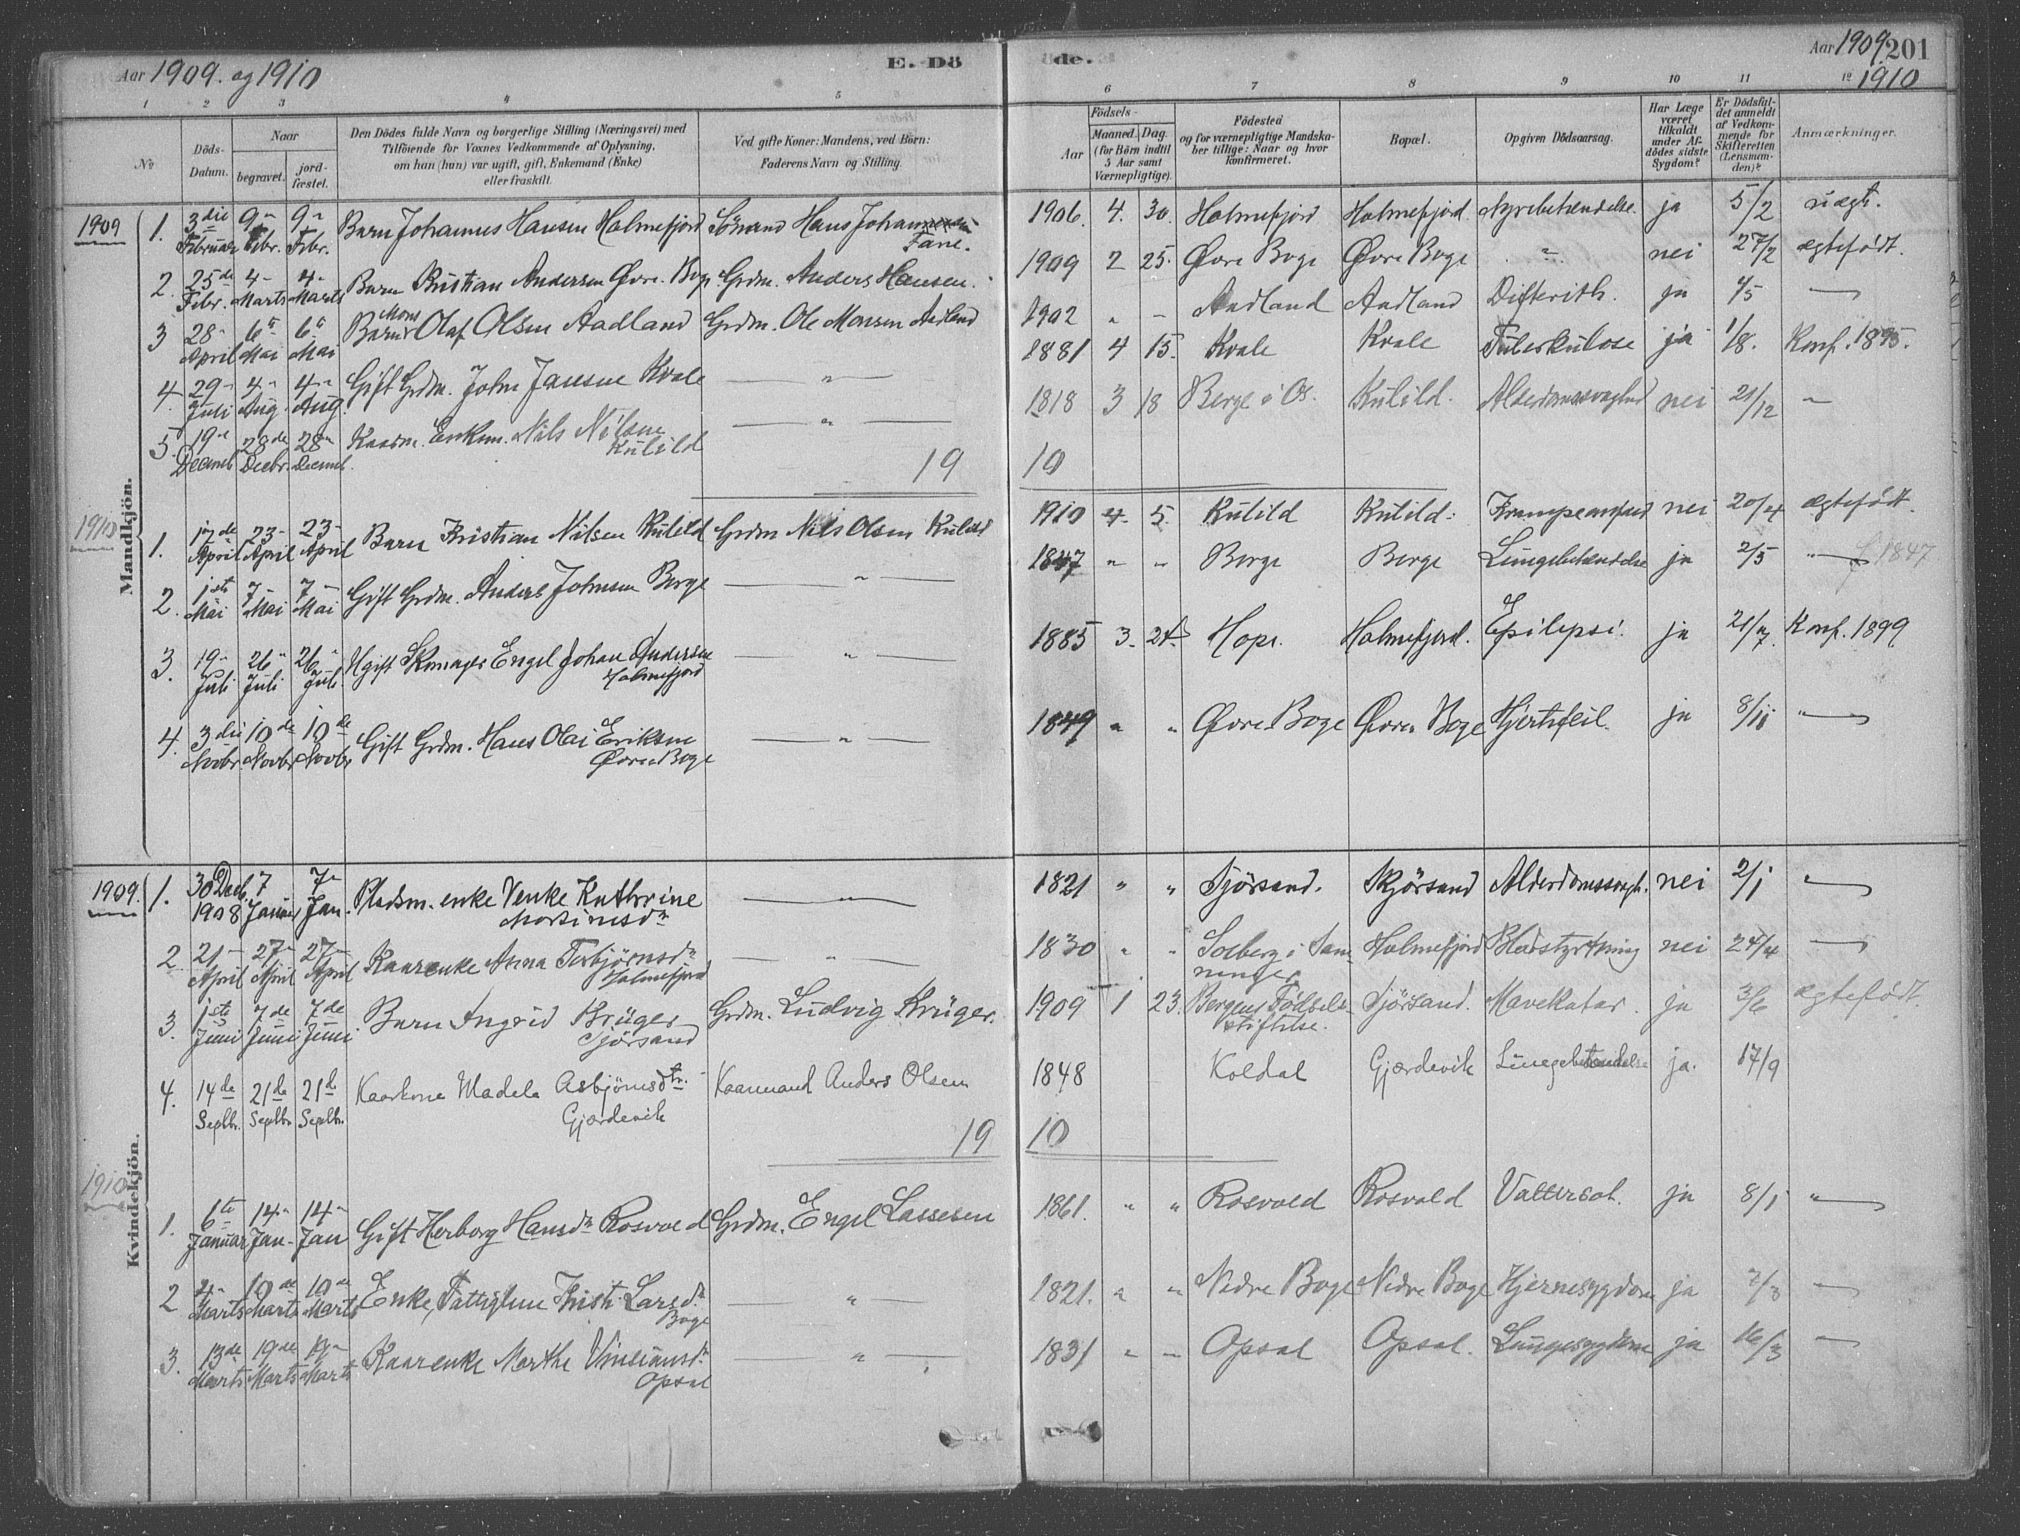 Aar 1909. og 1910
E. Dö
de.
Aar 1909. 201
1910
1 2 3 4 5 6 7 8 9 10 11 12
No
Döds-Datum.
Naar
begravet.
jord-fæstet.
Den Dödes fulde Navn og borgerlige Stilling (Næringsvei) med
Tilföiende for Voxnes Vedkommende af Oplysning,
om han (hun) var ugift, gift, Enkemand (Enke)
eller fraskilt.
Ved gifte Koner: Mandens, ved Börn:
Faderens Navn og Stilling.
Födsels-
Aar
Maaned. Dag.
(for Börn indtil
5 Aar samt
Værnepligtige).
Födested
og for værnepligtige Mandska-
ber tillige: Naar og hvor
konfirmeret.
Bopæl.
Opgiven Dödsaarsag.
Har Læge
været
tilkaldt
under Af-
dödes sidste
Sygdom?
Er Dödsfal-
det anmeldt
af Vedkom-
mende for
Skifteretten
(Lensman-
den)?
Anmærkninger.
Mandkjön.
1909
1. 3die Februar 9 Febr. 9 Febr. Barn Johannes Hansen Holmefjord Hans Fane. 1906 4. 30. Holmefjord Holmefjord. Nyrebetændelse. ja 5/2 uægt.
2. 25de Febr. 4 Marts 4 Marts Barn Kristian Andersen Øvre Boge Grdm. Anders Hansen. 1909 2 25. Øvre Boge Øvre Boge " nei 27/2 ægtefødt.
3 28 April 6te Mai 6te Mai Barn Mons Olaf Olsen Aadland Grdm. Ole Monsen Aadland 1902 " - Aadland Aadland Difterith. ja 4/5 —
4. 29 Juli 4 Aug. 4 Aug. Gift Grdm. John Jansen Kvale — " — 1881 4 15. Kvale Kvale Tuberkulose ja 1/8. Konf. 1895.
5. 19 Decemb 28de Decbr. 28 Decemb. Kaarm. Enkem. Nils Nilsen Kulild — " — 1818 3 18 Berge i Os. Kulild. nei 21/12 "
19 10
1910
1. 17de April 23 April 23 April Barn Kristian Nilsen Kulild Grdm Nils Olsen Kulild 1910 4. 5. Kulild Kulild. Krampeanfald nei 20/4 ægtefødt.
2. 1ste Mai 7 Mai 7 Mai Gift Grdm. Anders Johnsen Berge — " — 1847 " " Berge Berge Lungebetændelse ja 2/5 " — f 1847
3. 19 Juli 26 Juli 26 Juli Ugift Skomager Engel Johan Andersen Holmefjord — " — 1885 3. 24. Hope. Holmefjord. Epilepsi. ja 21/7. Konf. 1899
4. 3die Novbr 10de Novbr 10de Novbr Gift Grdm. Hans Olai Eriksen Øvre Boge — " — 1849 " " Øvre Boge Øvre Boge Hjertefeil. ja 8/11 " —
Kvindekjön.
1909.
1. 30 Decb. 1908 7 Januar 7 Jan. Pladsm. enke Venke Kathrine Mortinsdr — " — 1821 " " Sjörsand. Skjörsand nei 2/1 " —
2 21 April 27 April 27 April Kaarenke Anna Torbjörnsdr Holmefjord — " — 1830 " " Solberg i Samnanger Holmefjord Blodstyrtning nei 24/4 " —
3. 1ste Juni 7de Juni 7de Juni Barn Ingrid Krüger Sjörsand Grdm. Ludvig Krüger. 1909 1 23. Bergens Fødselsstiftelse. Sjörsand. Mavekatar. ja 3/6 ægtefødt.
4. 14de Septbr. 21de Septbr 21de Septbr. Kaarkone Madela Asbjörnsdtr. Gjærdevik Kaarmand Anders Olsen 1848 Koldal Gjærdevik Lungebetændelse ja. 17/9
19 10
1910
1. 6te Januar 14 Jan. 14 Jan Gift Herborg Hansdr Rosvold Grdm. Engel Lassesen 1861. " " Rosvold Rosvold Vattersot. ja 8/1 " —
2 4 Marts 10de Marts 10de Marts Enke, Fattiglem Kristi Larsdr Boge — " — 1821. " " Nedre Boge Nedre Boge Hjernesygdom ja 7/3 —
3. 13de Marts 19de Marts 19 Marts Kaarenke Marthe Opsal — " — 1831 " — Opsal Opsal. Lungesygdom ja 16/3 —